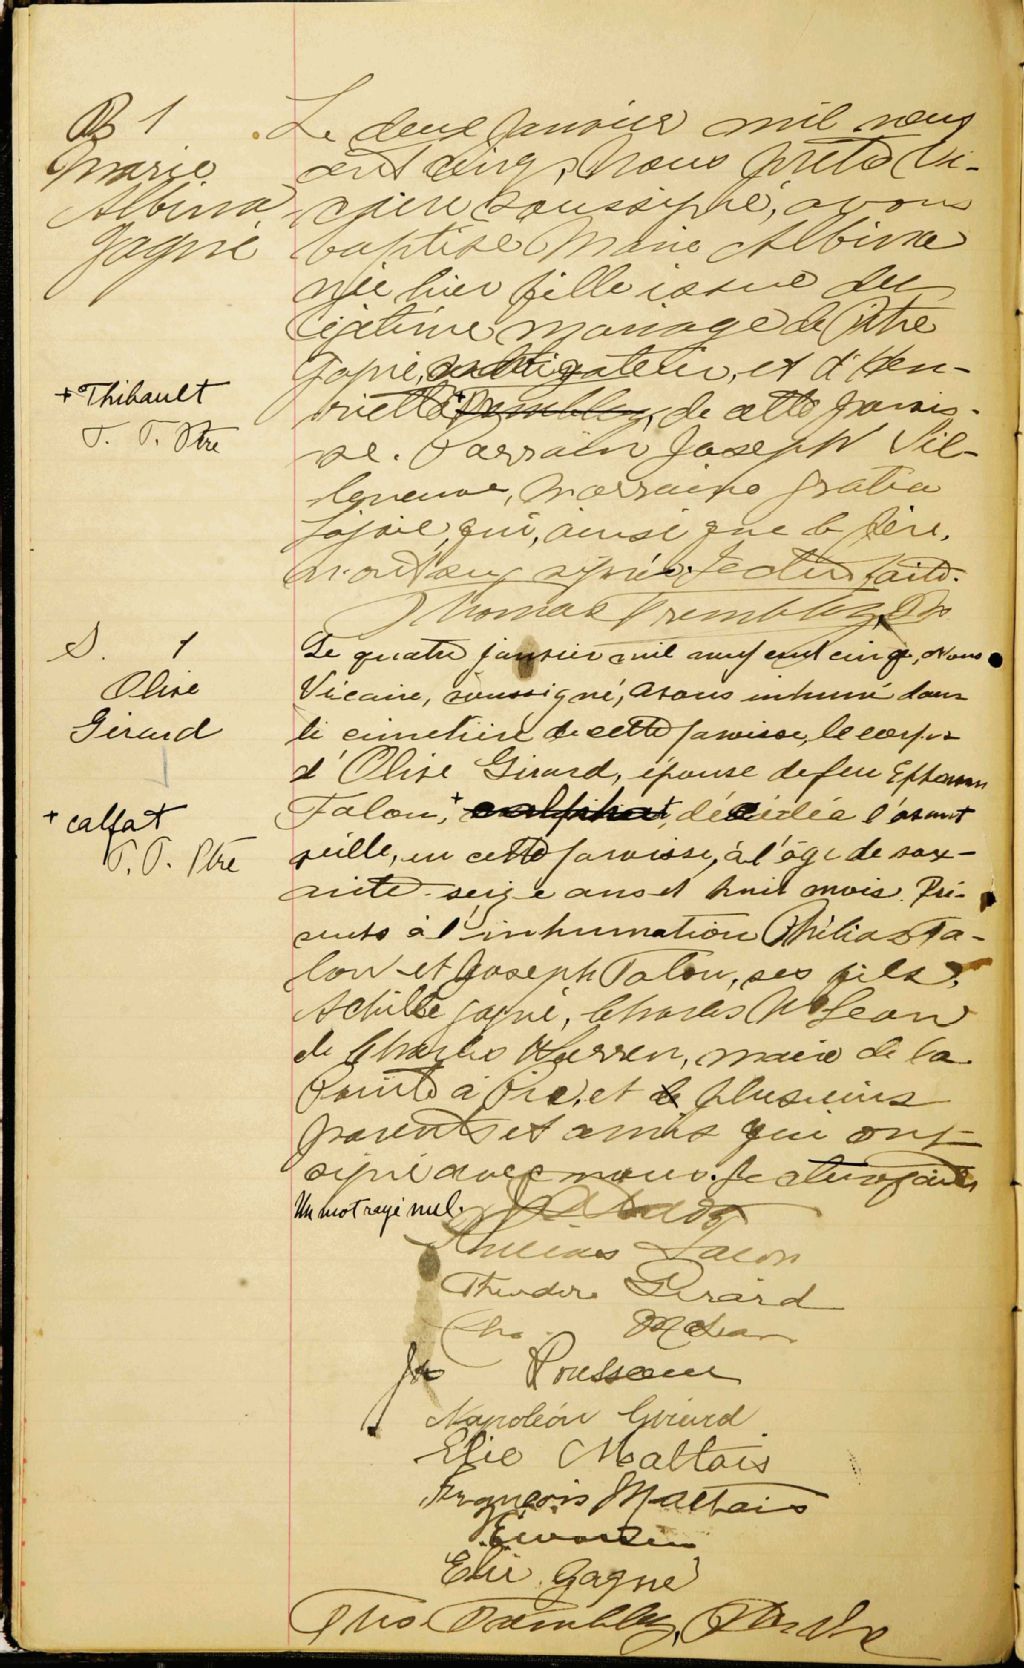 B 1
Marie
Albina
Gagné
Le deux janvier mil neuf
cent cinq, Nous prêtre Vi-
caire soussigné, avons
baptisé Marie Albina
née hier fille issue du
légitime mariage de Pitre
Gagné, cultivateur, et d'Hen-
riette + Tremblay, de cette parois-
se. Parrain Joseph Vil-
leneuve, Marraine Gratia
Lajoie, qui, ainsi que le père,
n'ont su signer. Lecture faite.
Thomas Tremblay, Ptre
+ Thibault
T. T. Ptre
S. 1
Olive
Girard
Le quatre janvier mil neuf cent cinq, Nous
Vicaire, soussigné, avons inhumé dans
le cimetière de cette paroisse, le corps
d'Olive Girard, épouse de feu Ephrem
Talon, + calphat, décédée l'avant
veille, en cette paroisse, à l'âge de soix-
ante-seize ans et huit mois. Pré-
sents à l'inhumation Philias Ta-
lon et Joseph Talon, ses fils,
Achille Gagné, Charles McLean
de Charles Warren, maire de la
Pointe à Pic, et de plusieurs
parents et amis qui ont
signé avec nous. Lecture faite
Un mot rayé nul.
+ calfat
T. T. Ptre
Philias Talon
Theodore Girard
Chs McLean
Jos Rousseau
Napoléon Girard
Elie Maltais
François Maltais
Elie Gagné
Ths Tremblay, Ptre